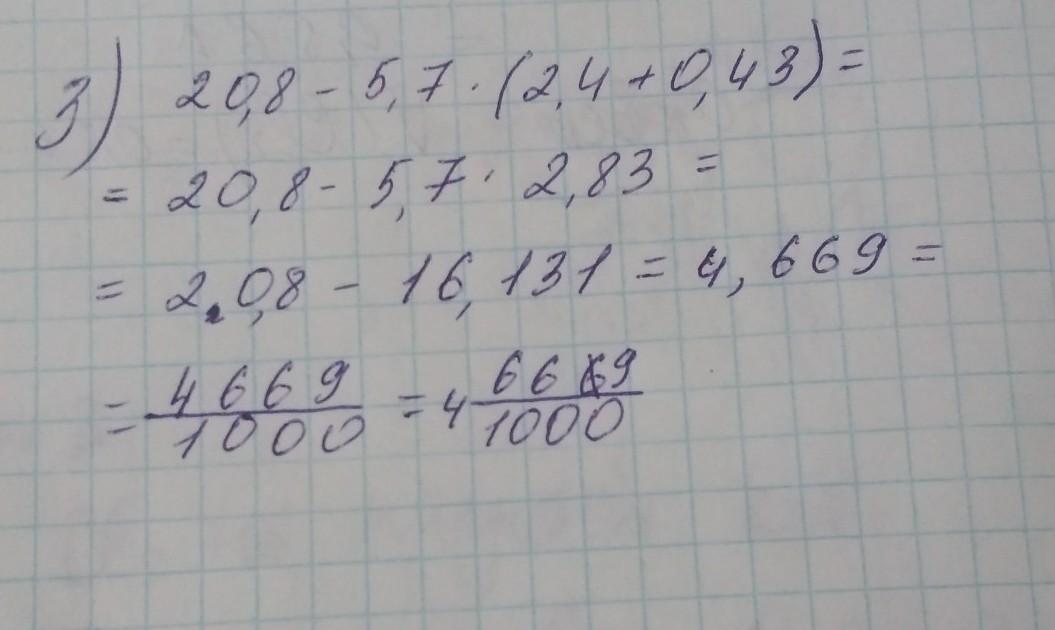 3) 20,8 - 5,7 · (2,4 + 0,43) =
= 20,8 - 5,7 · 2,83 =
= 20,8 - 16,131 = 4,669 =
= 4669/1000 = 4 669/1000